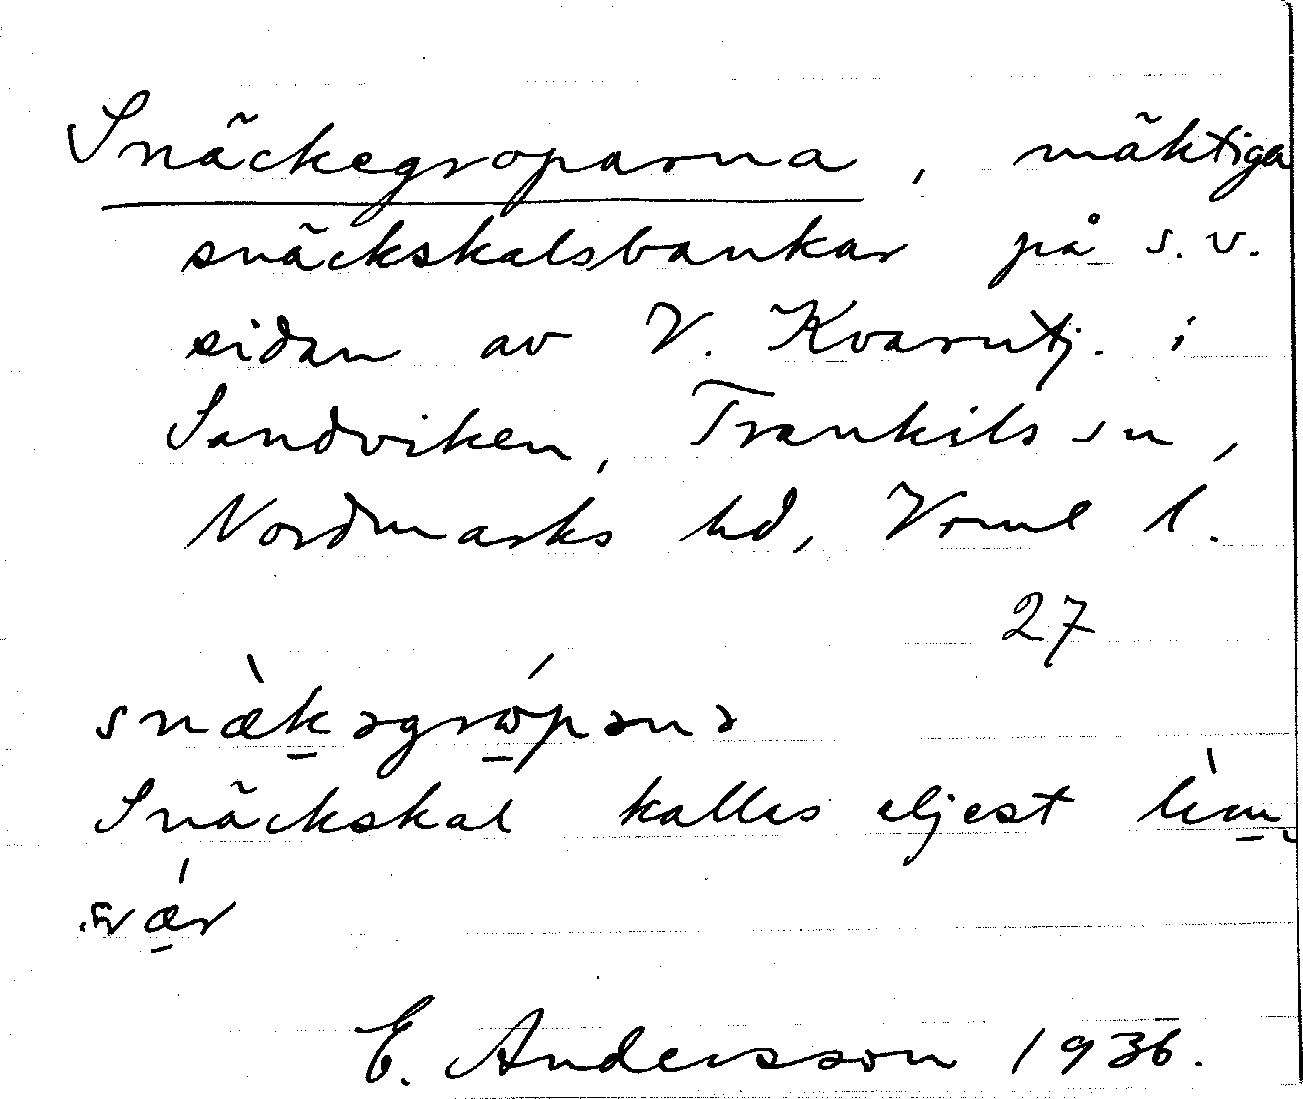 Snäckegroparna, mäktiga
snäckskalsbankar på s.v.
sidan av V. Kvarntj. i
Sandviken, Trankils sn,
Nordmarks hd, Värml l.
27
snæ̀kəgrópənə
Snäckskal kallas eljest
E. Andersson 1936.